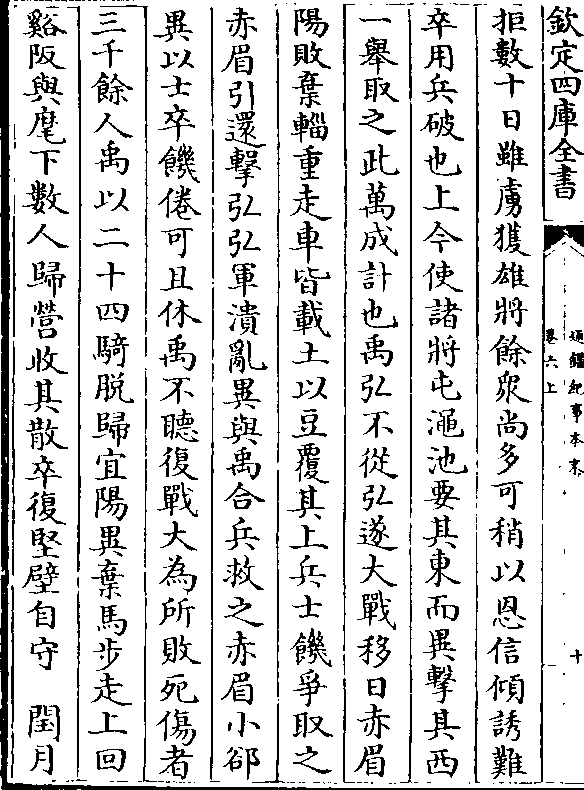 欽定四庫全書
通鑑紀事本末
卷六上
十
拒數十日雖虜獲雄將餘衆尚多可稍以恩信傾誘難
卒用兵破也上今使諸將屯澠池要其東而異擊其西
一舉取之此萬成計也禹弘不從弘遂大戰移日赤眉
陽敗棄輜重走車皆載土以豆覆其上兵士饑爭取之
赤眉引還擊弘弘軍潰亂異與禹合兵救之赤眉小郤
異以士卒饑倦可且休禹不聽復戰大為所敗死傷者
三千餘人禹以二十四騎脱歸宜陽異棄馬步走上回
谿阪與麾下數人歸營收其散卒復堅壁自守　閏月